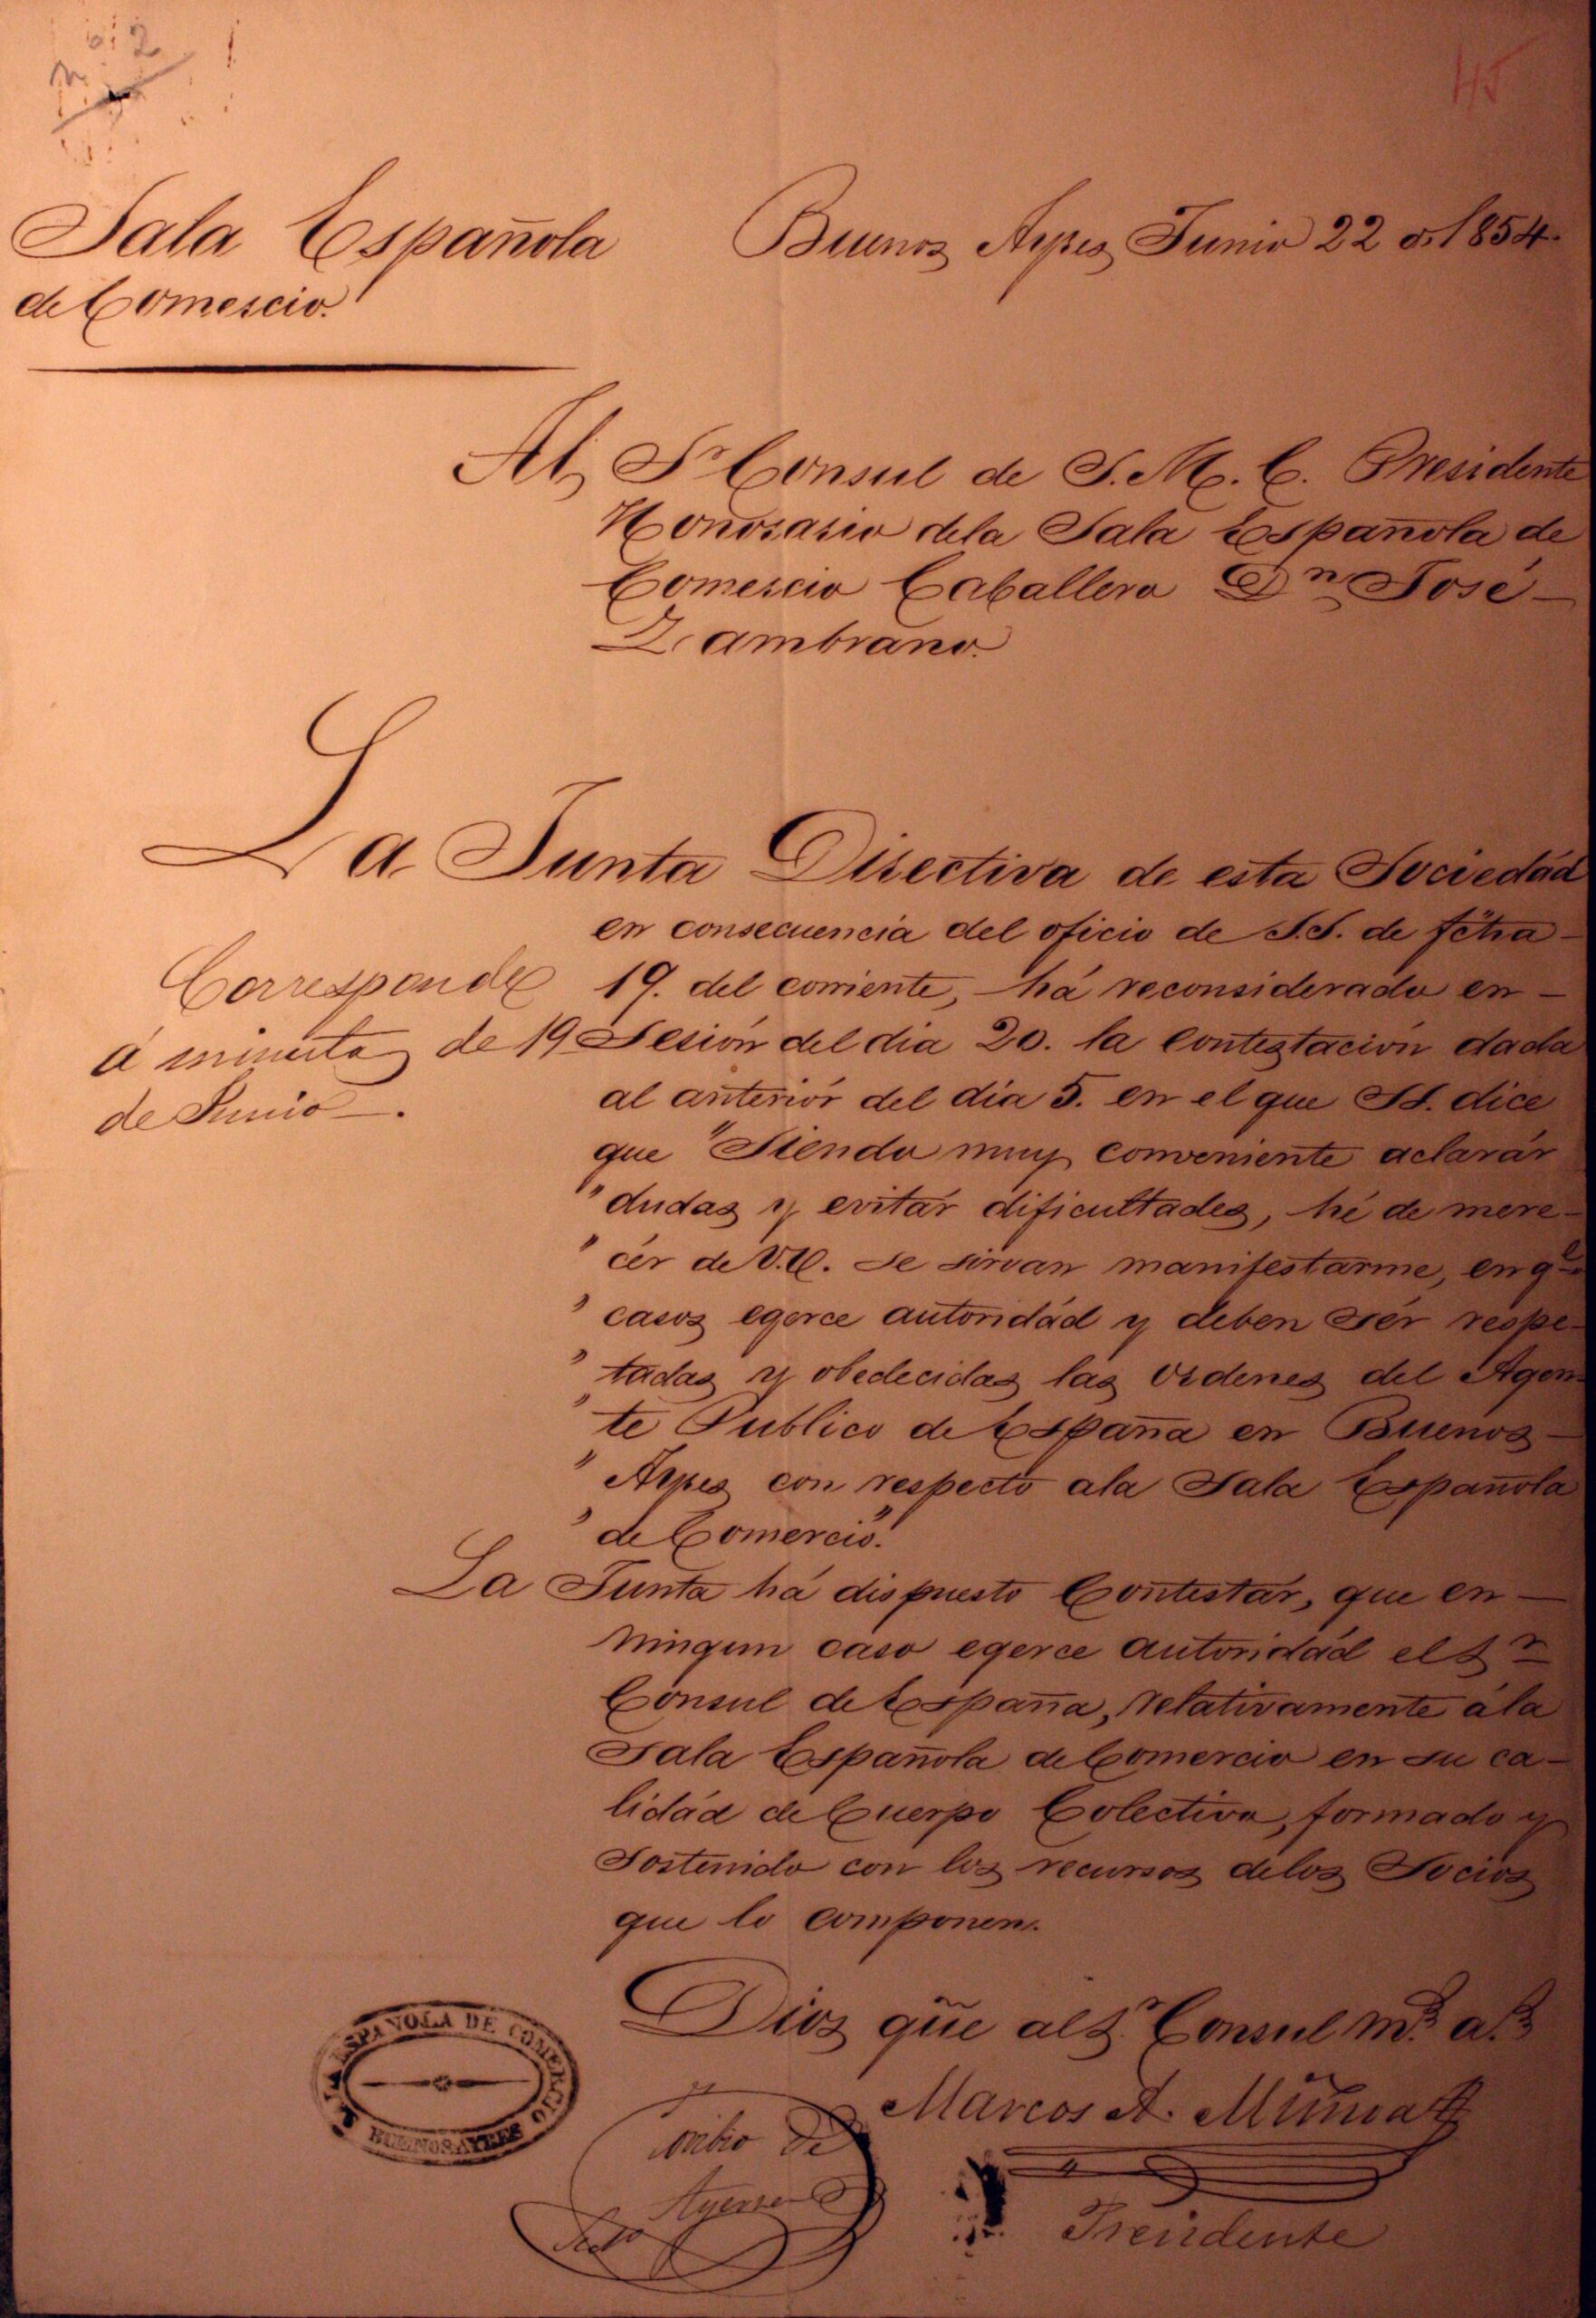 nº 2
45
Sala Española
de Comercio.
Buenos Ayres Junio 22 de 1854.
Al Sr Consul de S. M. C. Presidente
Honorario dela Sala Española de
Comercio Caballero Dn José
Zambrano.
La Junta Directiva de esta Sociedád
en consecuencia del oficio de S.S. de fcha
19. del corriente, há reconsiderado en
Sesión del dia 20. la contestación dada
al anteriór del dia 5. en el que SS. dice
que "Siendo muy conveniente aclarár
" dudas y evitár dificultades, hé de mere-
" cér de V.U. se sirvan manifestarme, en qe
" casos egerce autoridád y deben sér respe-
" tadas y obedecidas las ordenes del Agen-
" te Publico de España en Buenos
" Ayres con respecto ala Sala Española
" de Comercio."
Corresponde
á minuta de 19
de Junio.
La Junta há dispuesto Contestár, que en
ningun caso egerce autoridád el Sr
Consul de España, relativamente ála
Sala Española de Comercio en su ca-
lidád de Cuerpo Colectivo, formado y
sostenido con los recursos delos Socios
que lo componen.
Dios güe al Sr. Consul ms. as.
Marcos A. Muñoa
Presidente
Toribio de
Ayerza
Secro
SALA ESPAÑOLA DE COMERCIO
BUENOS AYRES